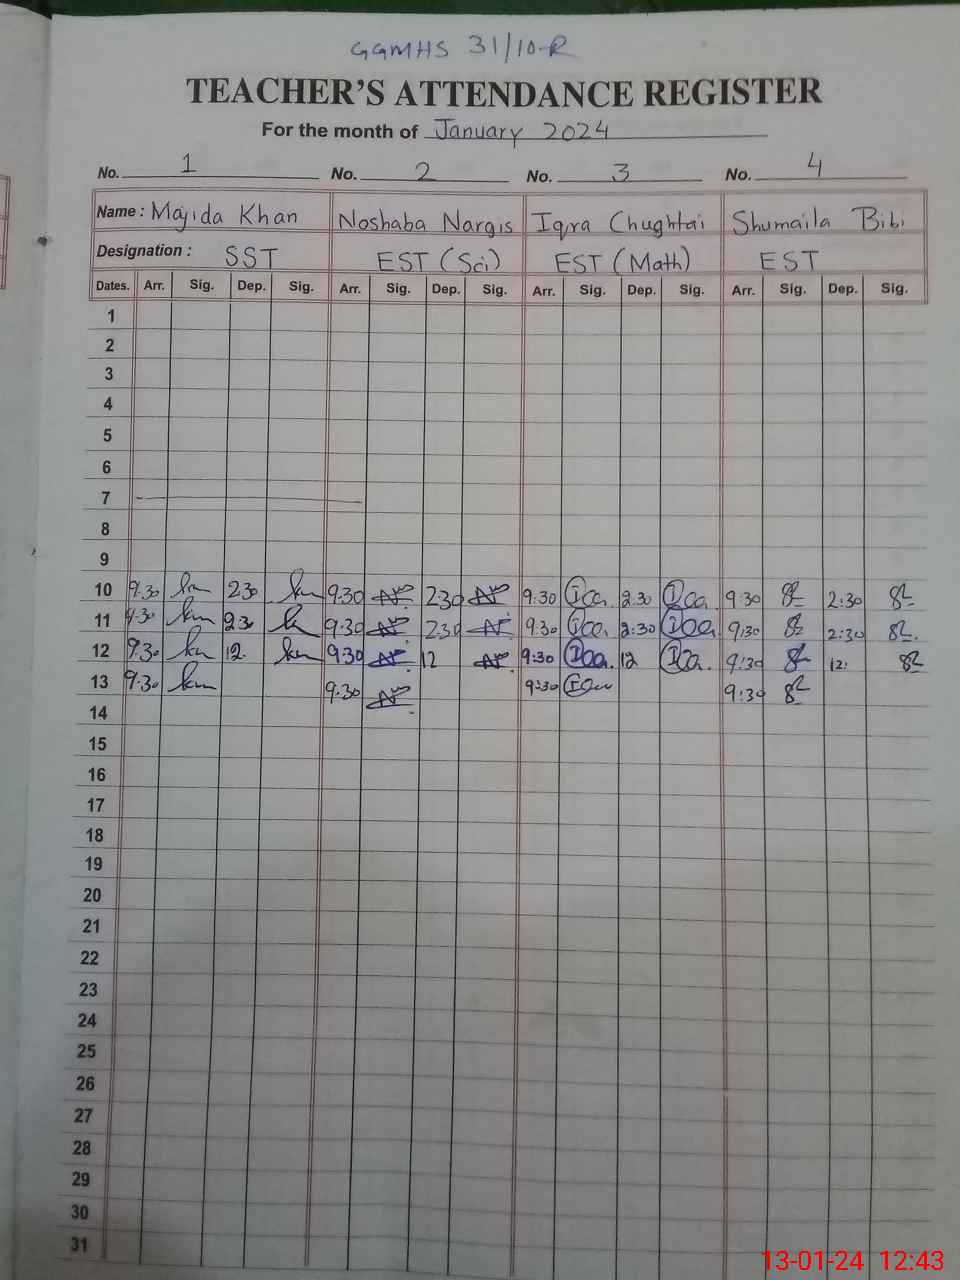 GGMHS 31/10-R
TEACHER'S ATTENDANCE REGISTER
For the month of January 2024
No. 1 No. 2 No. 3 No. 4
Name : Majida Khan Noshaba Nargis Iqra Chughtai Shumaila Bibi
Designation : SST EST (Sci) EST (Math) EST
Dates. Arr. Sig. Dep. Sig. Arr. Sig. Dep. Sig. Arr. Sig. Dep. Sig. Arr. Sig. Dep. Sig.
1
2
3
4
5
6
7
8
9
10 9.30 230 9:30 2:30 9:30 2:30 9:30 2:30
11 9.30 230 9:30 2:30 9:30 2:30 9:30 2:30
12 9.30 12. 9:30 12 9:30 12 9:30 12:
13 9.30 9.30 9:30 9:30
14
15
16
17
18
19
20
21
22
23
24
25
26
27
28
29
30
31
13-01-24 12:43